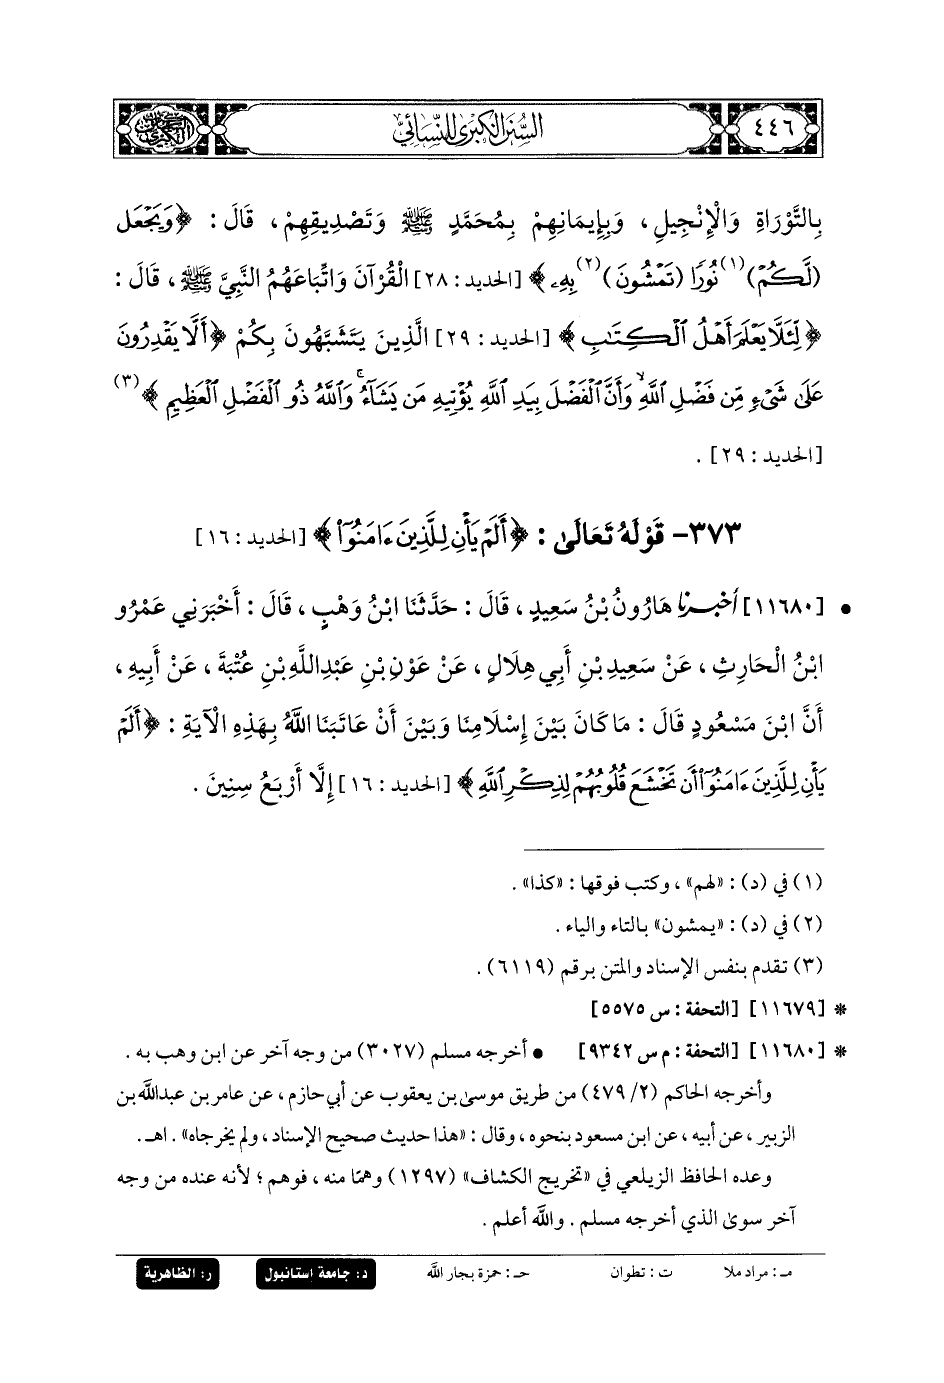 ٤٤٦
السنن الكبرى للنسائي
بِالتَّوْرَاةِ وَالْإِنْجِيلِ ، وَبِإِيمَانِهِمْ بِمُحَمَّدٍ ﷺ وَتَصْدِيقِهِمْ ، قَالَ : ﴿وَيَجْعَل
(لَّكُمْ)(١) نُورًا (تَمْشُونَ)(٢) بِهِۦ﴾ [الحديد : ٢٨] الْقُرْآنَ وَاتِّبَاعَهُمُ النَّبِيَّ ﷺ ، قَالَ :
﴿لِّئَلَّا يَعْلَمَ أَهْلُ ٱلْكِتَٰبِ﴾ [الحديد : ٢٩] الَّذِينَ يَتَشَبَّهُونَ بِكُمْ ﴿أَلَّا يَقْدِرُونَ
عَلَىٰ شَىْءٍ مِّن فَضْلِ ٱللَّهِ ۙ وَأَنَّ ٱلْفَضْلَ بِيَدِ ٱللَّهِ يُؤْتِيهِ مَن يَشَآءُ ۚ وَٱللَّهُ ذُو ٱلْفَضْلِ ٱلْعَظِيمِ﴾(٣)
[الحديد : ٢٩] .
٣٧٣- قَوْلُهُ تَعَالَىٰ : ﴿أَلَمْ يَأْنِ لِلَّذِينَ ءَامَنُوٓا۟﴾ [الحديد : ١٦]
• [١١٦٨٠] أَخْبَرَنَا هَارُونُ بْنُ سَعِيدٍ ، قَالَ : حَدَّثَنَا ابْنُ وَهْبٍ ، قَالَ : أَخْبَرَنِي عَمْرُو
ابْنُ الْحَارِثِ ، عَنْ سَعِيدِ بْنِ أَبِي هِلَالٍ ، عَنْ عَوْنِ بْنِ عَبْدِاللَّهِ بْنِ عُتْبَةَ ، عَنْ أَبِيهِ ،
أَنَّ ابْنَ مَسْعُودٍ قَالَ : مَا كَانَ بَيْنَ إِسْلَامِنَا وَبَيْنَ أَنْ عَاتَبَنَا اللَّهُ بِهَذِهِ الْآيَةِ : ﴿أَلَمْ
يَأْنِ لِلَّذِينَ ءَامَنُوٓا۟ أَن تَخْشَعَ قُلُوبُهُمْ لِذِكْرِ ٱللَّهِ﴾ [الحديد : ١٦] إِلَّا أَرْبَعُ سِنِينَ .
(١) في (د) : «لهم» ، وكتب فوقها : «كذا» .
(٢) في (د) : «يمشون» بالتاء والياء .
(٣) تقدم بنفس الإسناد والمتن برقم (٦١١٩) .
* [١١٦٧٩] [التحفة : س ٥٥٧٥]
* [١١٦٨٠] [التحفة : م س ٩٣٤٢] • أخرجه مسلم (٣٠٢٧) من وجه آخر عن ابن وهب به .
وأخرجه الحاكم (٢/ ٤٧٩) من طريق موسى بن يعقوب عن أبي حازم ، عن عامر بن عبدالله بن
الزبير ، عن أبيه ، عن ابن مسعود بنحوه ، وقال : «هذا حديث صحيح الإسناد ، ولم يخرجاه» . اهـ .
وعده الحافظ الزيلعي في «تخريج الكشاف» (١٢٩٧) وهمًا منه ، فوهم ؛ لأنه عنده من وجه
آخر سوى الذي أخرجه مسلم . والله أعلم .
مـ : مراد ملا ت : تطوان حـ : حمزة بجار الله د : جامعة استانبول ر : الظاهرية